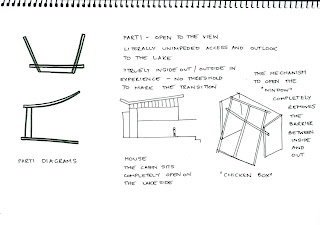 PARTI - OPEN TO THE VIEW
LITERALLY UNIMPEDED ACCESS AND OUTLOOK
TO THE LAKE
TRUELY INSIDE OUT / OUTSIDE IN
EXPERIENCE - NO THRESHOLD
TO MARK THE TRANSITION
THE MECHANISM
TO OPEN THE
"WINDOW"
COMPLETELY
REMOVES
THE
BARRIER
BETWEEN
INSIDE
AND
OUT
PARTI DIAGRAMS
HOUSE
THE CABIN SITS
COMPLETELY OPEN ON
THE LAKE SIDE
"CHICKEN BOX"